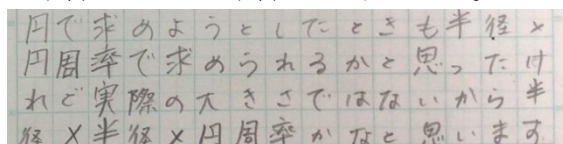 円で求めようとしたときも半径×
円周率で求められるかと思ったけ
れど実際の大きさではないから半
径×半径×円周率かなと思います